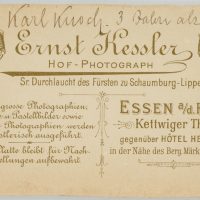 Karl Kusch. 3 Jahre alt
Ernst Kessler
HOF-PHOTOGRAPH
Sr Durchlaucht des Fürsten zu Schaumburg-Lippe
grosse Photographien,
u. Pastellbilder sowie
Photographien werden
künstlerisch ausgeführt.
Platte bleibt für Nach-
stellungen aufbewahrt
ESSEN a/d. R
Kettwiger Th
gegenüber HÔTEL HE
in der Nähe des Berg. Märk